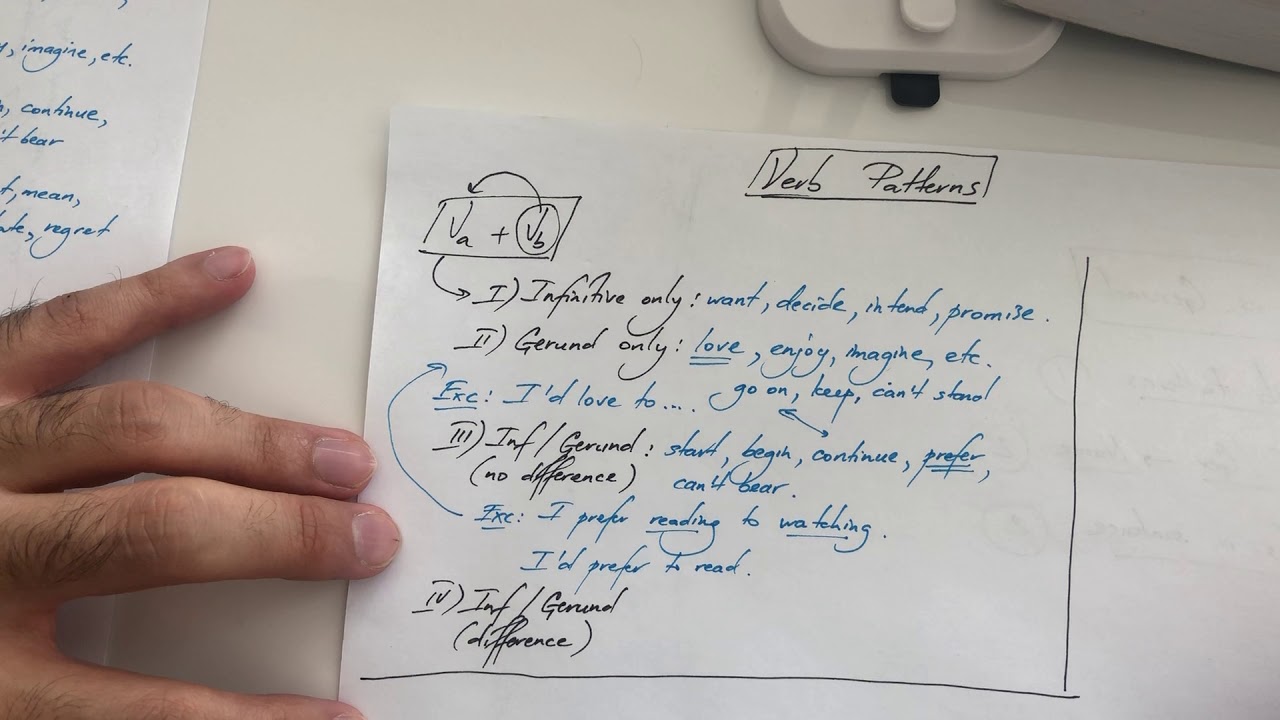 , imagine, etc.
, continue,
't bear
t, mean,
regret
Verb Patterns
Va + Vb
I) Infinitive only: want, decide, intend, promise.
II) Gerund only: love, enjoy, imagine, etc.
Exc: I'd love to.... go on, keep, can't stand
III) Inf/Gerund: start, begin, continue, prefer,
(no difference) can't bear.
Exc: I prefer reading to watching.
I'd prefer to read.
IV) Inf/Gerund
(difference)